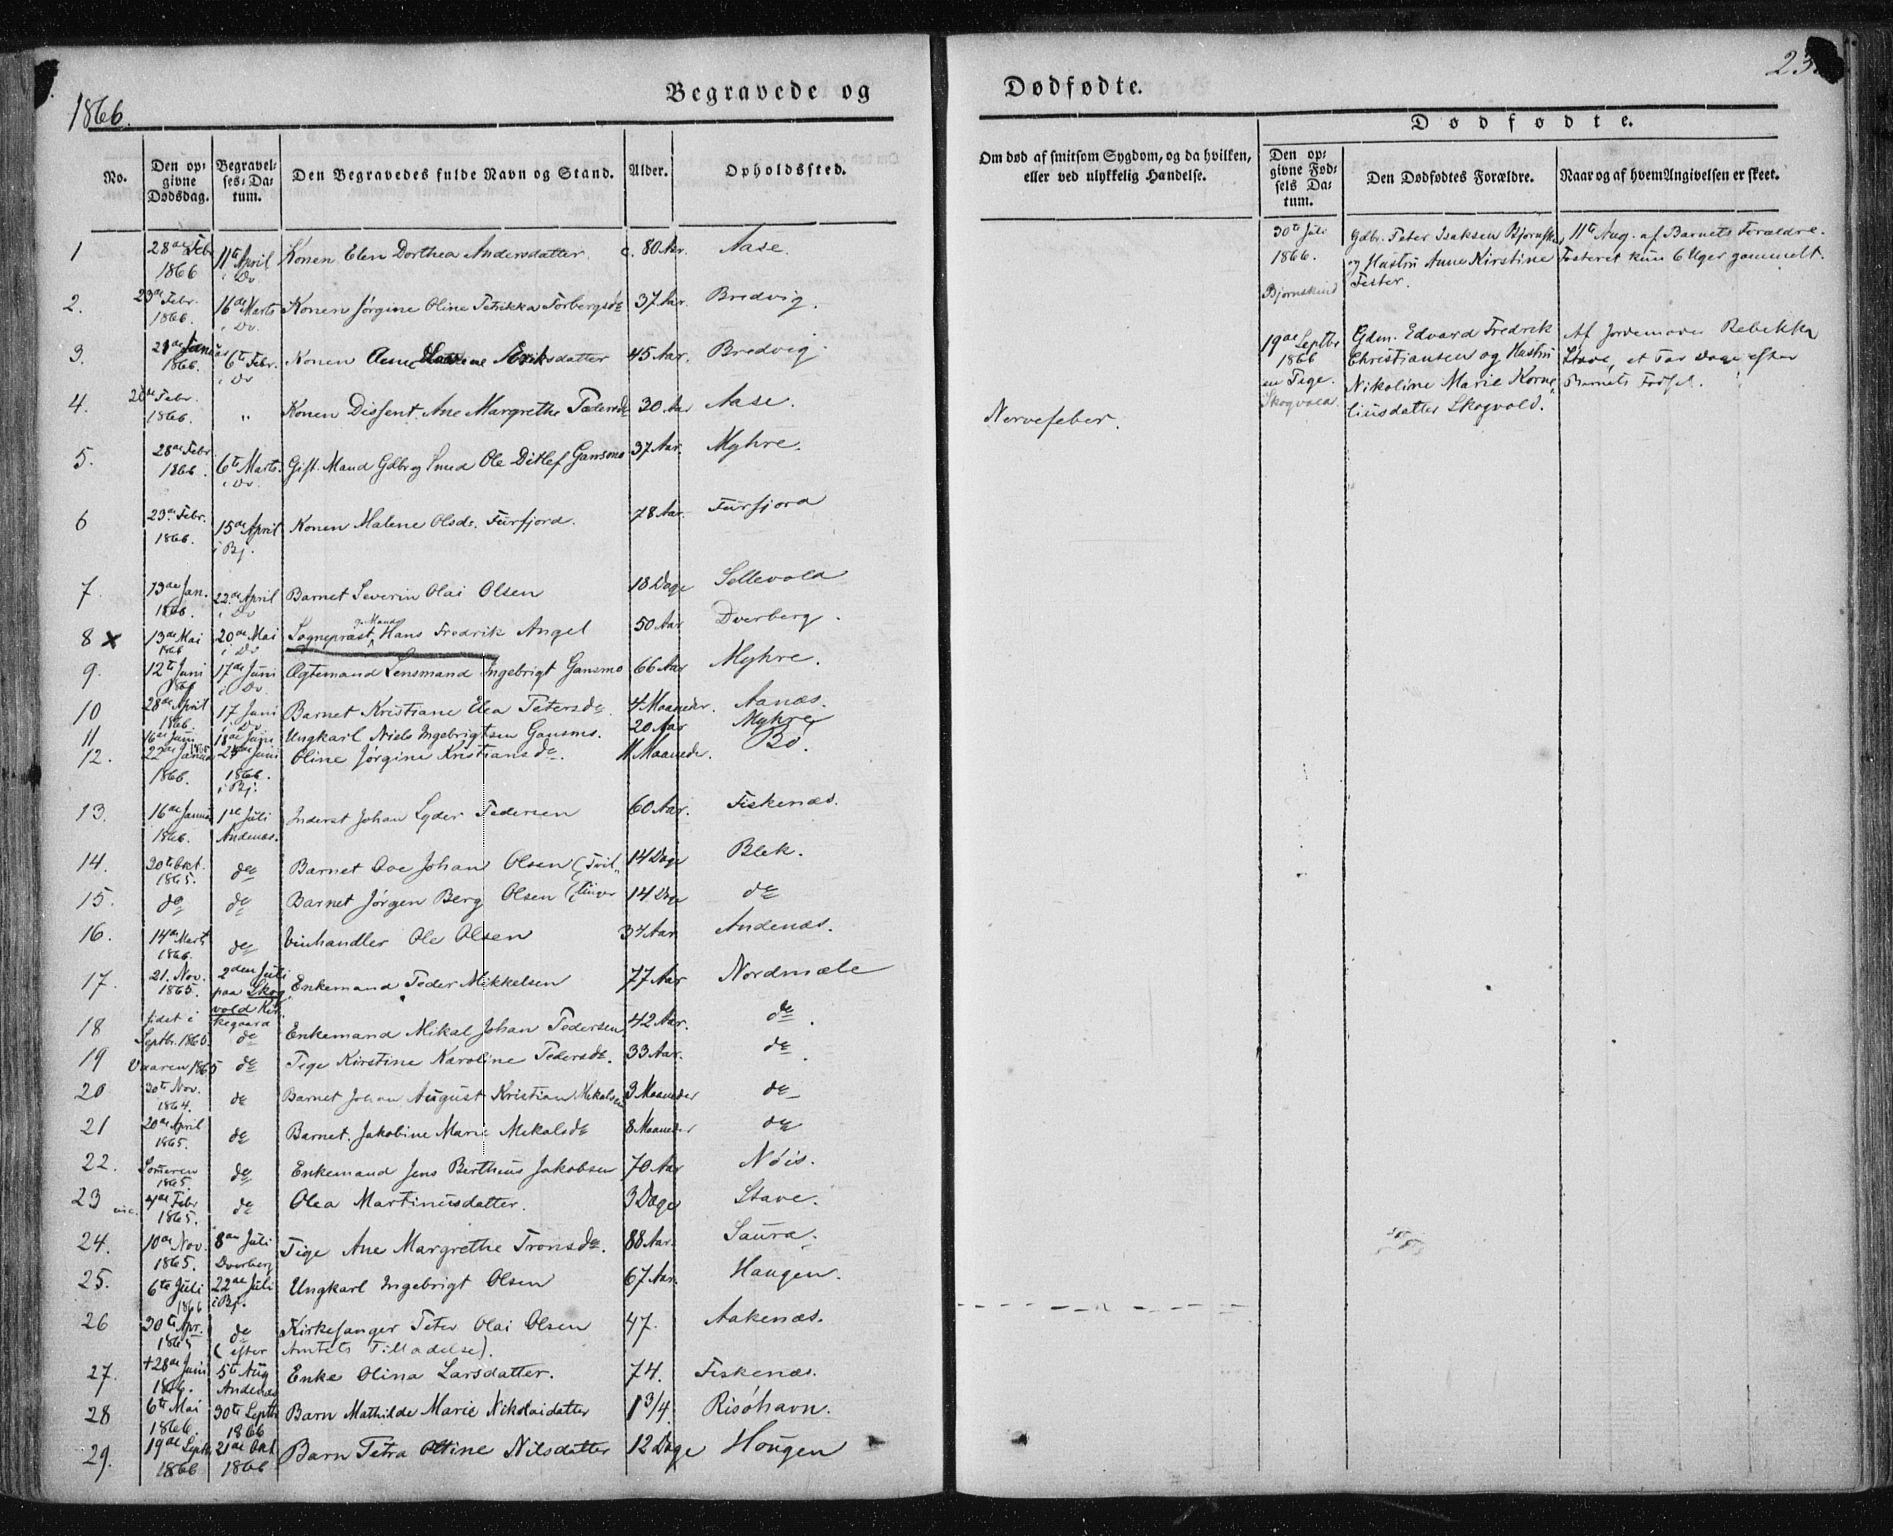 1866.
Begravede og
Dødfødte.
23
No.
Den op-
givne
Dødsdag.
Begravel-
ses-Da-
tum.
Den Begravedes fulde Navn og Stand.
Alder.
Opholdssted.
Om død af smitsom Sygdom, og da hvilken,
eller ved ulykkelig Hændelse.
Dødfødte.
Den op-
givne Fød-
sels Da-
tum.
Den Dødfødtes Forældre.
Naar og af hvem Angivelsen er skeet.
1 28de Febr 1866 11te April i Dv Konen Elen Dorthea Andersdatter c. 80 Aar Aase.
2. 23de Febr. 1866. 16de Marts i Dv. Konen Jørgine Oline Petrikka Torbergsdr 37 Aar. Bredvig.
3. 1866. 6te Febr. i Dv Konen Anne Eriksdatter 45 Aar. Bredvig.
4. Febr. 1866. " Konen Dissent. Ane Margrethe Pedersdr 30 Aar Aase. Nervefeber.
5. 28de Febr 1866. 6te Marts i Dv. Gift. Mand Gdbr og Smed Ole Ditlef Gansmo 37 Aar. Myhre.
6 23de Febr. 1866. 15de April i Bj. Konen Malene Olsdr. Fürfjord. 78 Aar. Fürfjord
7. 13de Jan. 1866. 22de April i Dv Barnet Severin Olai Olsen 18 Dage Sellevold
8 x 13de Mai 1866 20de Mai i Dv Sognepræst, g. Mand Hans Fredrik Angel 50 Aar Dverberg.
9. 12te Juni 1866 17de Juni i Dv. Ægtemand Lensmand Ingebrigt Gansmo 66 Aar Myhre.
10 28de April 1866. 17 Juni Dv Barnet Kristiane Elea Petersdr. 4 Maaneder. Aanæs.
11. 16de Juni 18de Juni Ungkarl Niels Ingebrigtsen Gansmo. 20 Aar Myhre
12. 22de Januar 1866. 24de Juni 1866. i Bj. Oline Jørgine Kristiansdr. 11 Maaneder. Bø.
13. 16de Januar 1866. 1ste Juli Andenæs. Inderst Johan Lyder Pedersen 60 Aar. Fiskenæs.
14. 20te Okt. 1865. do Barnet Ove Johan Olsen (Tvil- 14 Dage Blek.
15. do do Barnet Jørgen Berg Olsen (linger 14 Dage do
16. 14de Marts 1866. do Vinhandler Ole Olsen 34 Aar. Andenæs.
17. 21. Nov. 1865. 2den Juli paa Skogvold Kirkegaard Enkemand Peder Mikkelsen 77 Aar Nordmæle
18 sidst i Septbr. 1865. do Enkemand Mikal Johan Pedersen 42 Aar. do.
19 Vaaren 1865 do Pige Kirstine Karoline Pedersdr. 33 Aar. do.
20 30te Nov. 1864. do Barnet Johan August Kristian Mikalsen 3 Maaneder do
21 20de April 1865. do Barnet Jakobine Marie Mikalsdr 8 Maaneder do
22. Someren 1865. do Enkemand Jens Bertheus Jakobsen 70 Aar Nöis.
23 Febr 1865. do Olea Martinusdatter. 3 Dage Stave.
24. 10de Nov. 1865. 8de Juli Dverberg Pige Ane Margrethe Tronsdr. 88 Aar. Saura.
25. 6te Juli 1866 22de Juli i Bj. Ungkarl Ingebrigt Olsen 67 Aar. Haugen.
26 30te Apr. 1865 do (efter Kirkesanger Peter Olai Olsen 47. Aakenæs.
Amtets Tilladelse).
27. +28de Juni 1866. 5te Aug Andenæs Enke Olina Larsdatter. 74. Fiskenæs.
28 6te Mai 1866. 30te Septbr 1866 Barn Mathilde Marie Nikolaidatter 1 3/4. Risøhavn.
29. 19de Septbr 1866 21de Okt 1866 Barn Petra Ottine Nilsdatter 12 Dage Hougen
30te Juli 1866. Gdbr. Peter Isaksen Bjørnskin 11te Aug. af Barnets Forældre.
og Hustru Anne Kirstine Fosteret kun 6 Uger gammelt.
Bjørnskind Pester.
19de Septbr Gdm. Edvard Fredrik Af Jordemoder Rebekka
1866 Christiansen og Hustru Stave, et Par Dage efter
en Pige. Nikoline Marie Korne- Barnets Fødsel.
Skogvold. liusdatter Skogvold.